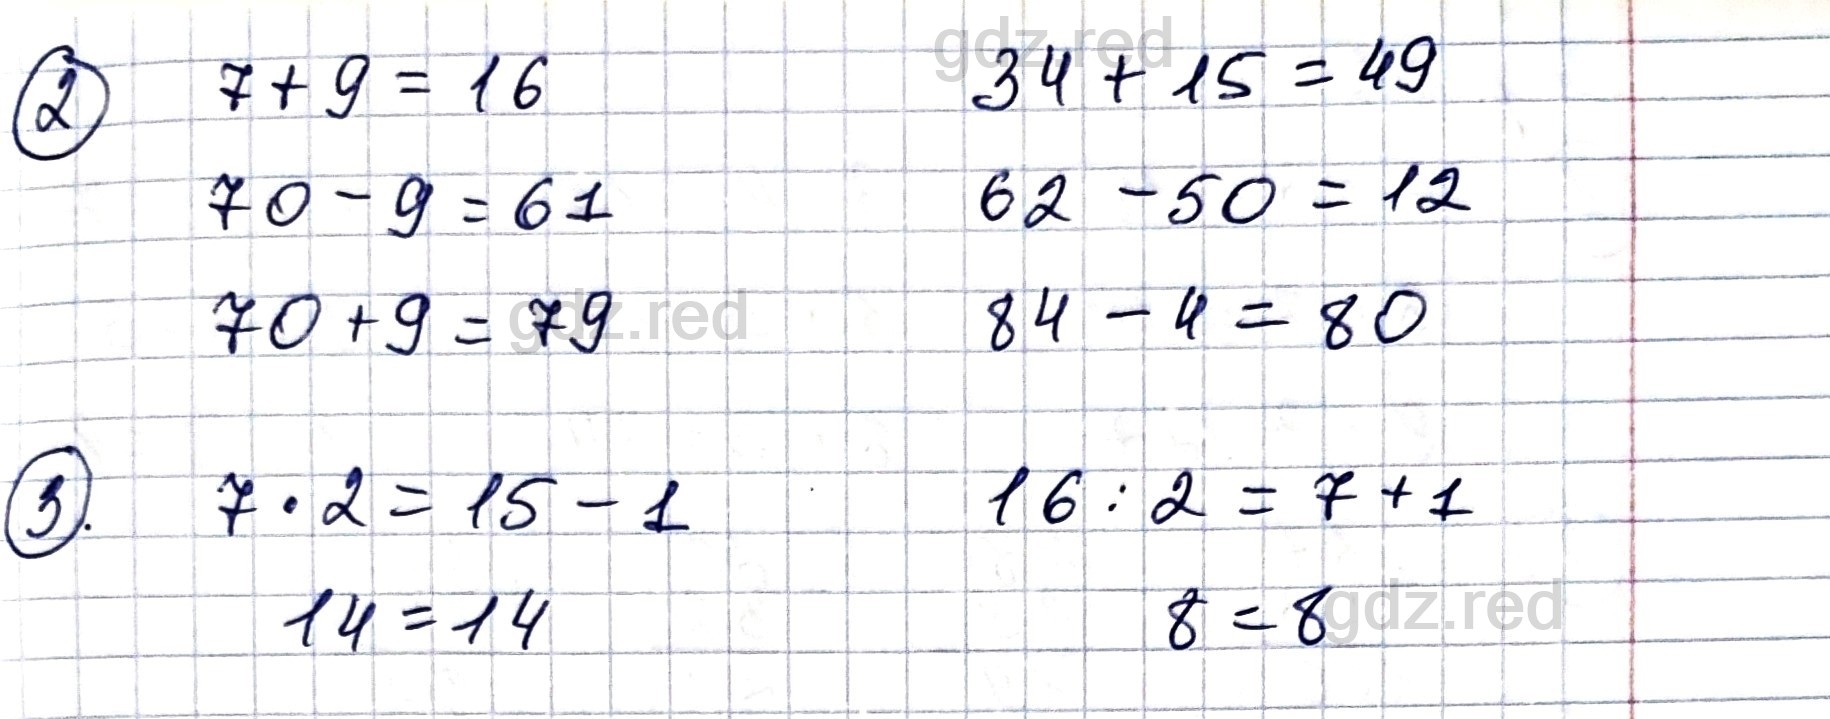 gdz.red
② 7 + 9 = 16 34 + 15 = 49
70 - 9 = 61 62 - 50 = 12
70 + 9 = 79 84 - 4 = 80
gdz.red
③. 7 · 2 = 15 - 1 16 : 2 = 7 + 1
14 = 14 8 = 8
gdz.red